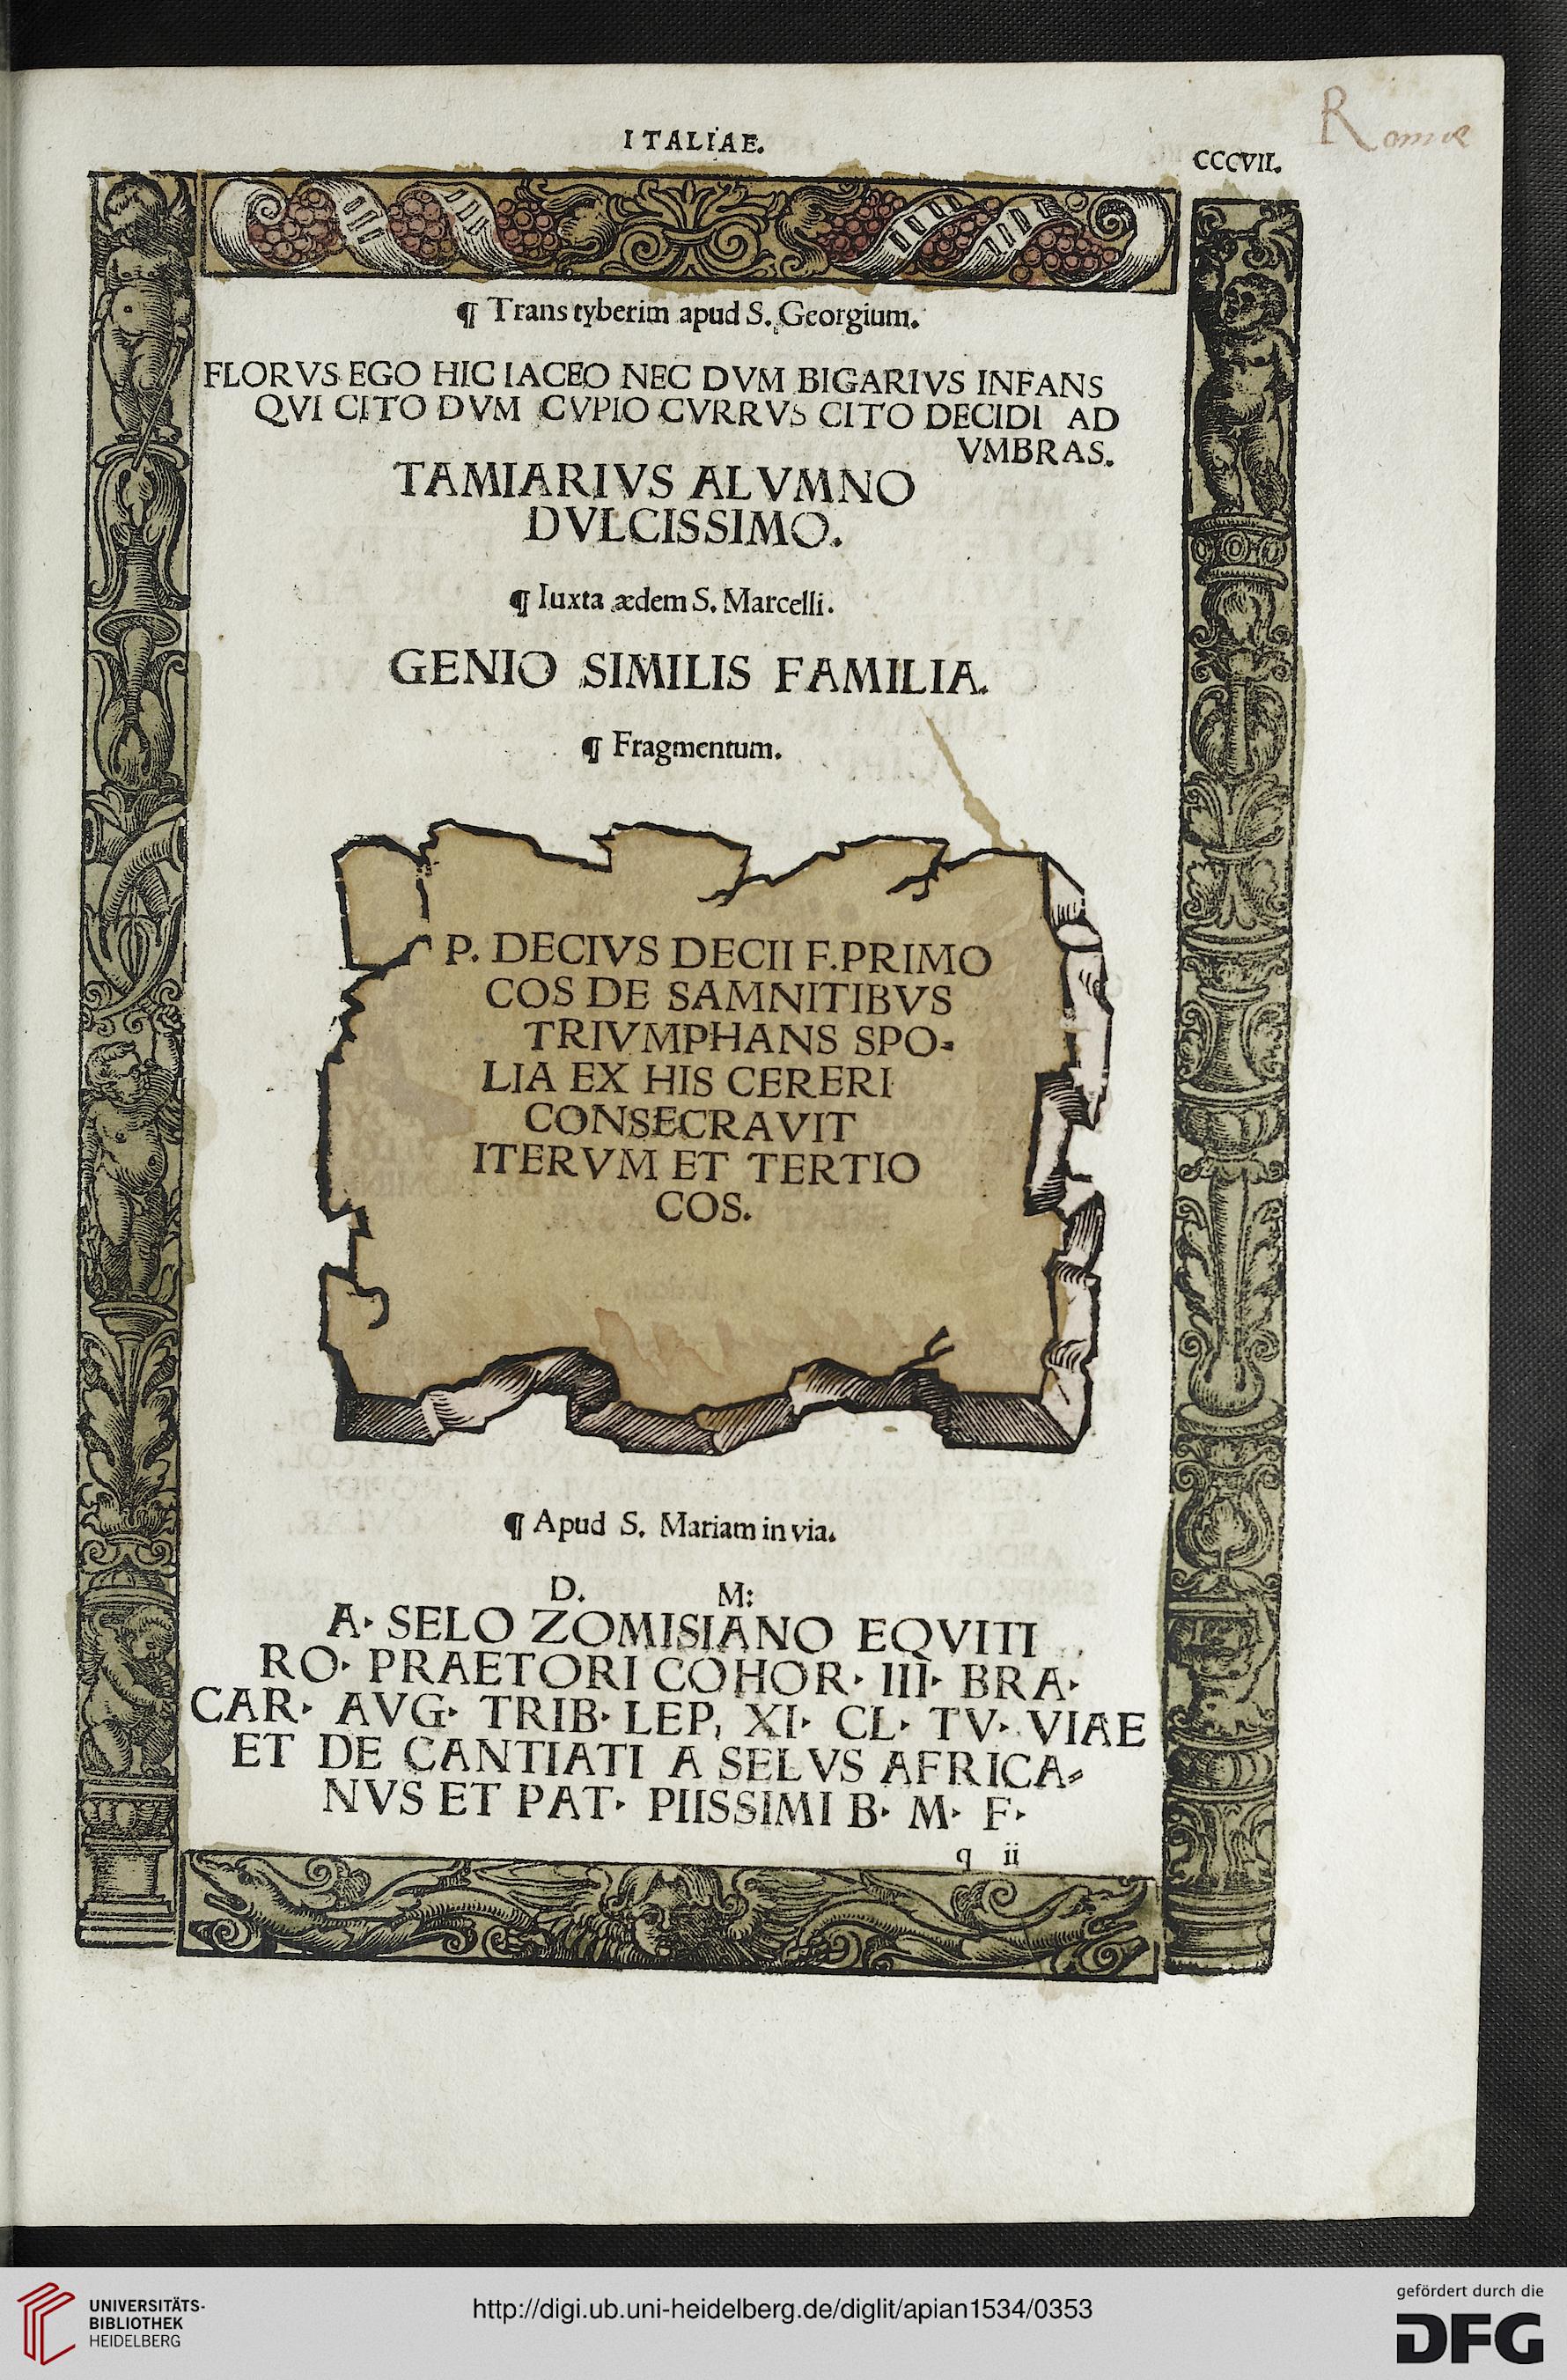 Romæ
ITALIAE.
CCCVII.
¶ Trans tyberim apud S. Georgium.
FLORVS EGO HIC IACEO NEC DVM BIGARIVS INFANS
QVI CITO DVM CVPIO CVRRVS CITO DECIDI AD
VMBRAS.
TAMIARIVS ALVMNO
DVLCISSIMO.
¶ Iuxta ædem S. Marcelli.
GENIO SIMILIS FAMILIA.
¶ Fragmentum.
P. DECIVS DECII F. PRIMO
COS DE SAMNITIBVS
TRIVMPHANS SPO-
LIA EX HIS CERERI
CONSECRAVIT
ITERVM ET TERTIO
COS.
¶ Apud S. Mariam in via.
D. M:
A· SELO ZOMISIANO EQVITI
RO· PRAETORI COHOR· III· BRA·
CAR· AVG· TRIB· LEP, XI· CL· TV· VIAE
ET DE CANTIATI A SELVS AFRICA-
NVS ET PAT· PIISSIMI B· M· F·
q ii
UNIVERSITÄTS-
BIBLIOTHEK
HEIDELBERG
http://digi.ub.uni-heidelberg.de/diglit/apian1534/0353
gefördert durch die
DFG